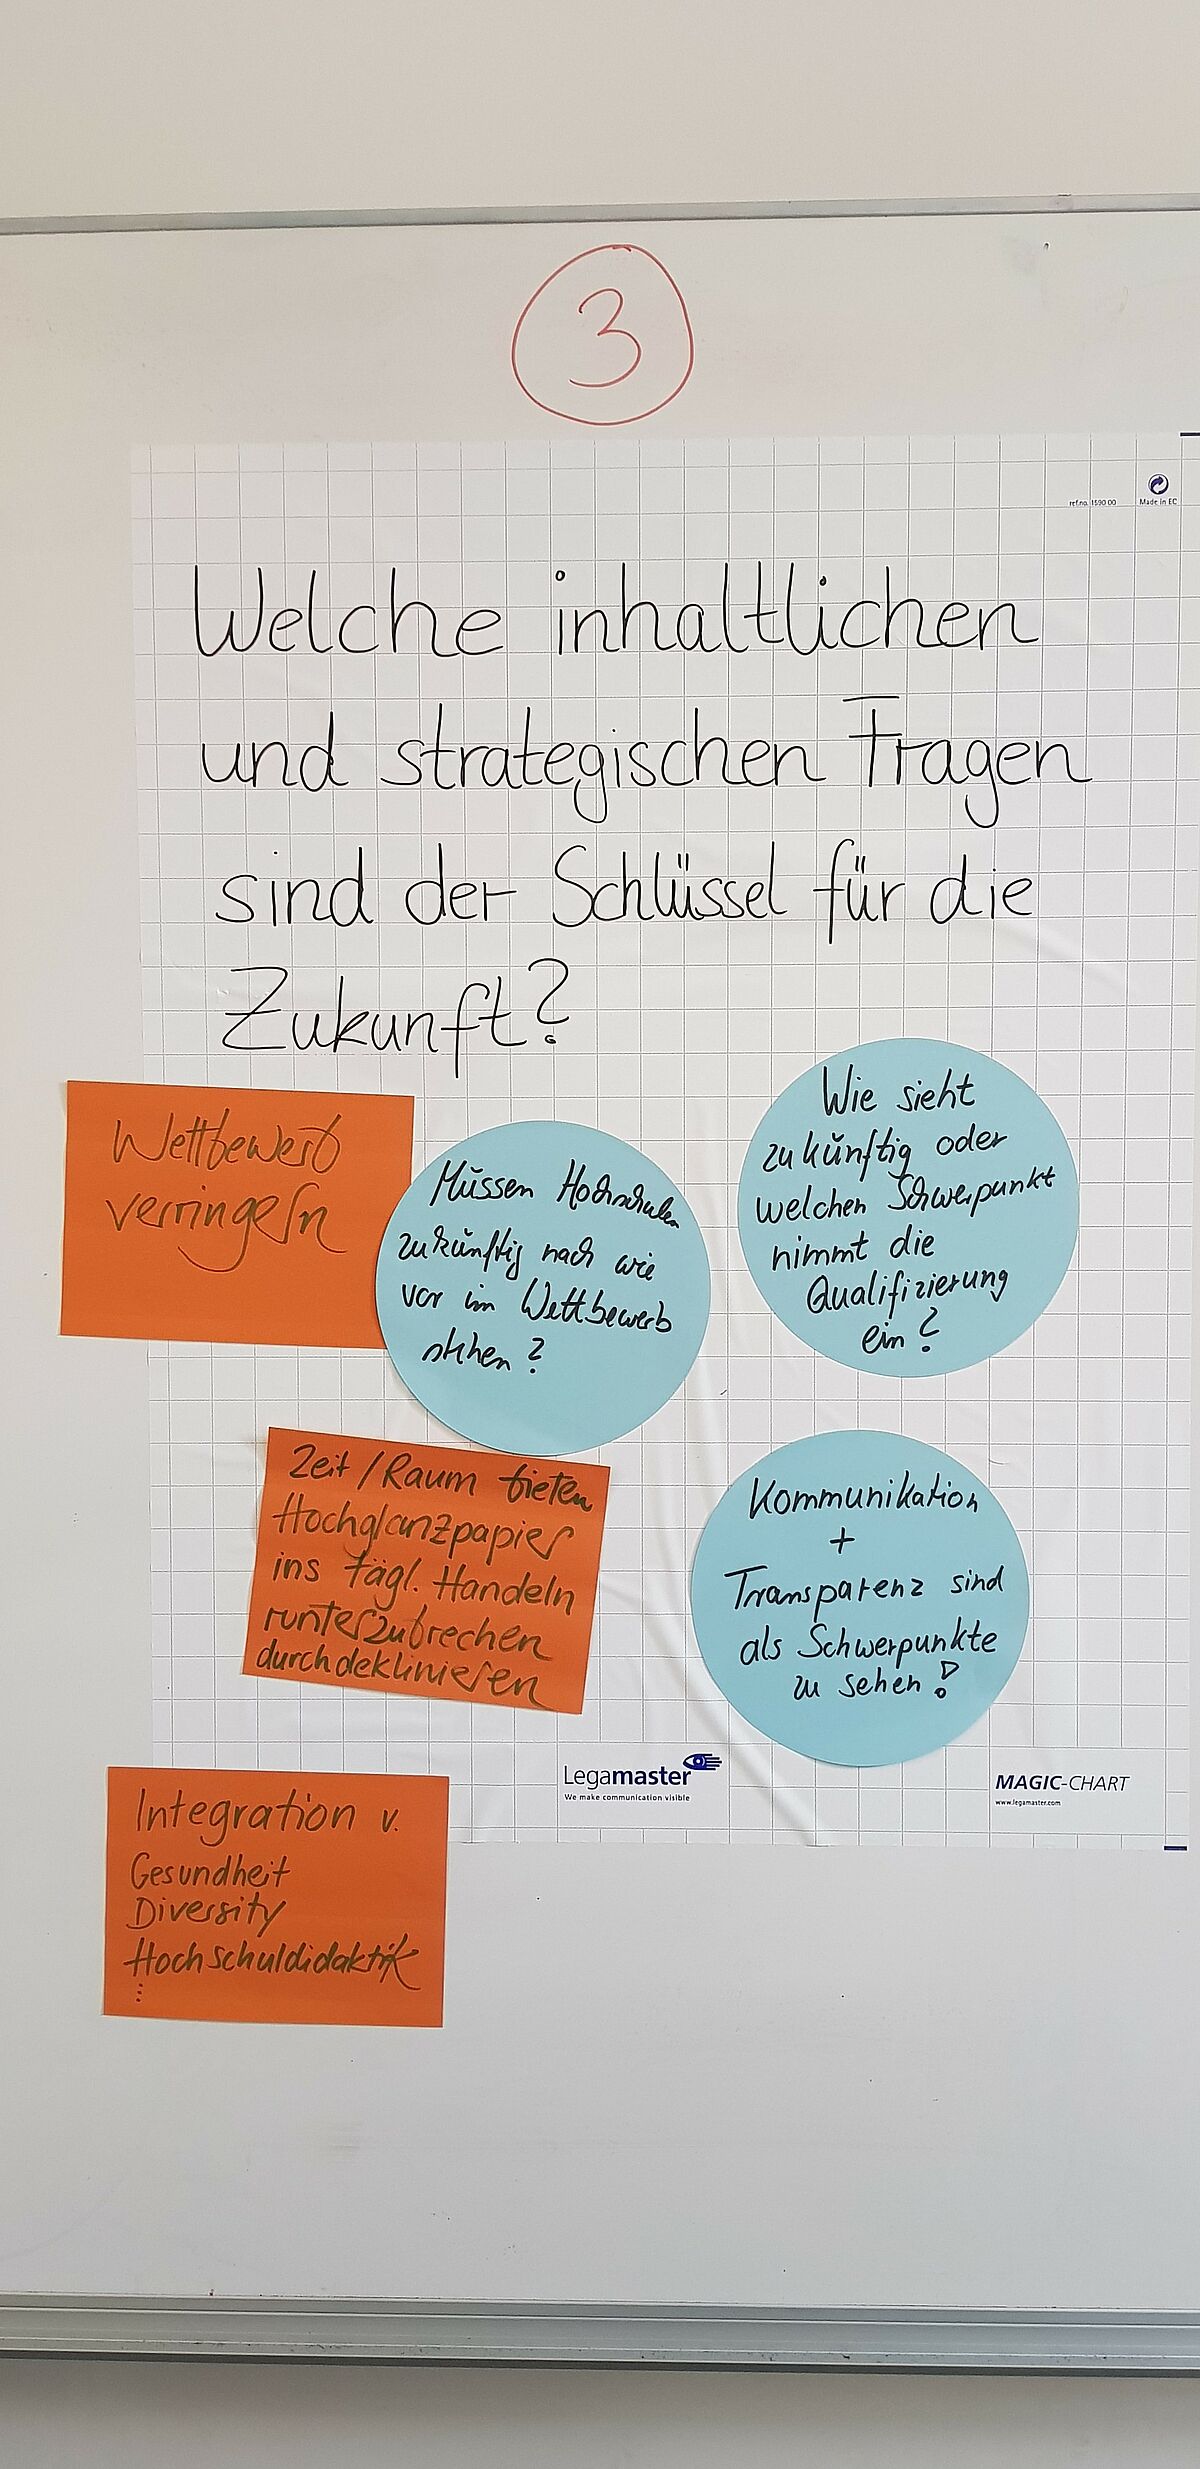 3
ref.no. 1590 00
Made in EC
Welche inhaltlichen
und strategischen Fragen
sind der Schlüssel für die
Zukunft?
Wettbewerb
verringern
Müssen Hochschulen
zukünftig nach wie
vor im Wettbewerb
stehen?
Wie sieht
zukünftig oder
welchen Schwerpunkt
nimmt die
Qualifizierung
ein?
Zeit/Raum bieten
Hochglanzpapier
ins tägl. Handeln
runterzubrechen
durchdeklinieren
Kommunikation
+
Transparenz sind
als Schwerpunkte
zu sehen!
Legamaster
We make communication visible
MAGIC-CHART
www.legamaster.com
Integration v.
Gesundheit
Diversity
Hochschuldidaktik
...